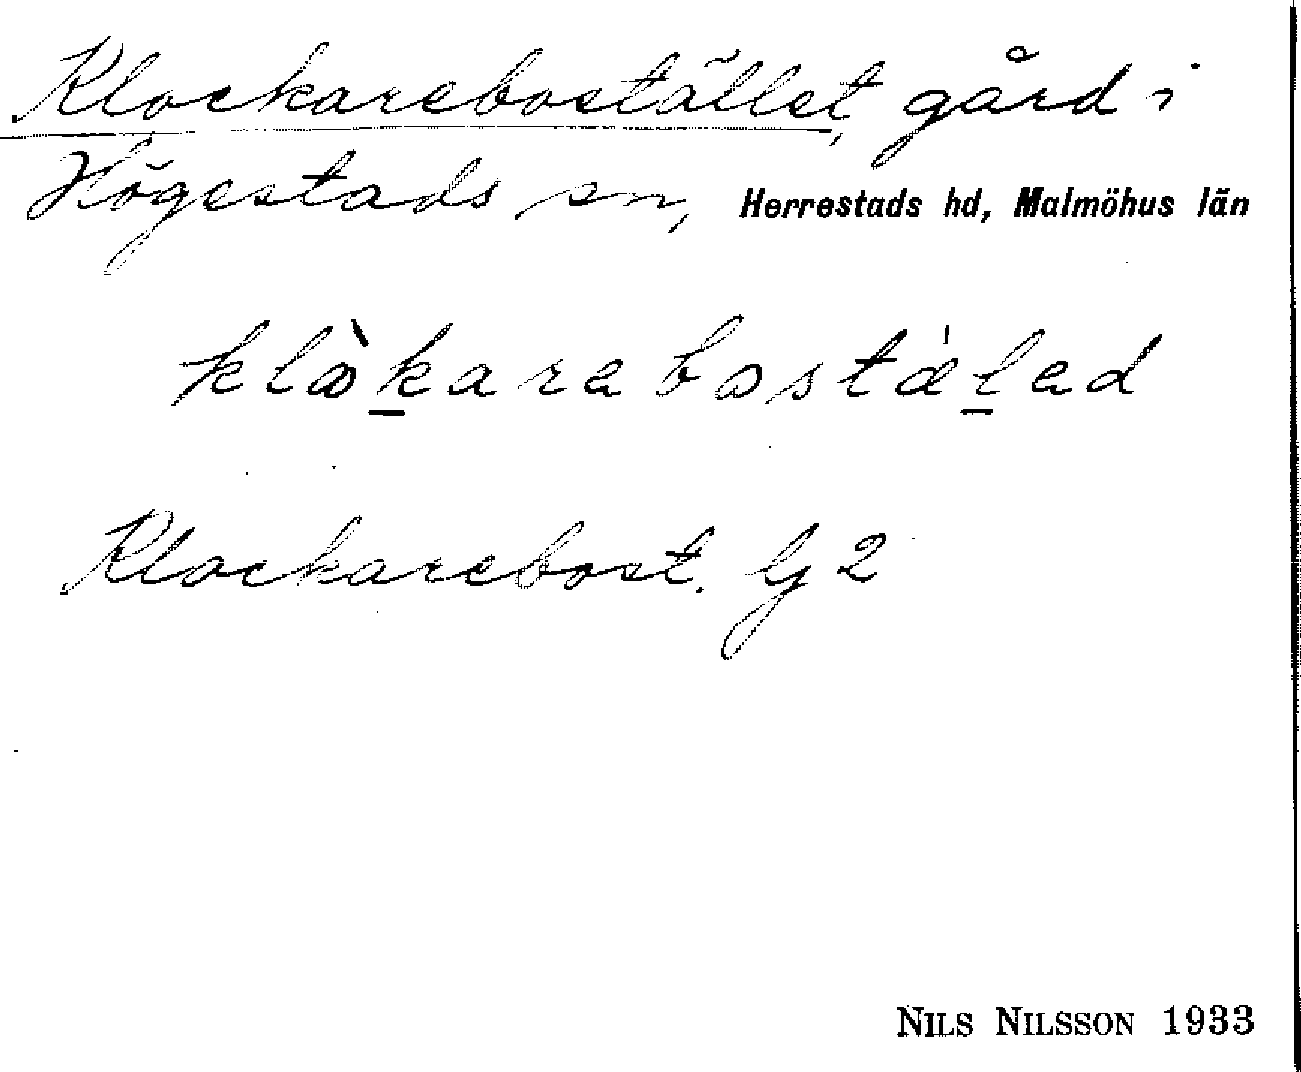 Klockarebostället, gård i
Högestads sn, Herrestads hd, Malmöhus län
klòkarabostälad
Klockarebost. Gj 2
NILS NILSSON 1933